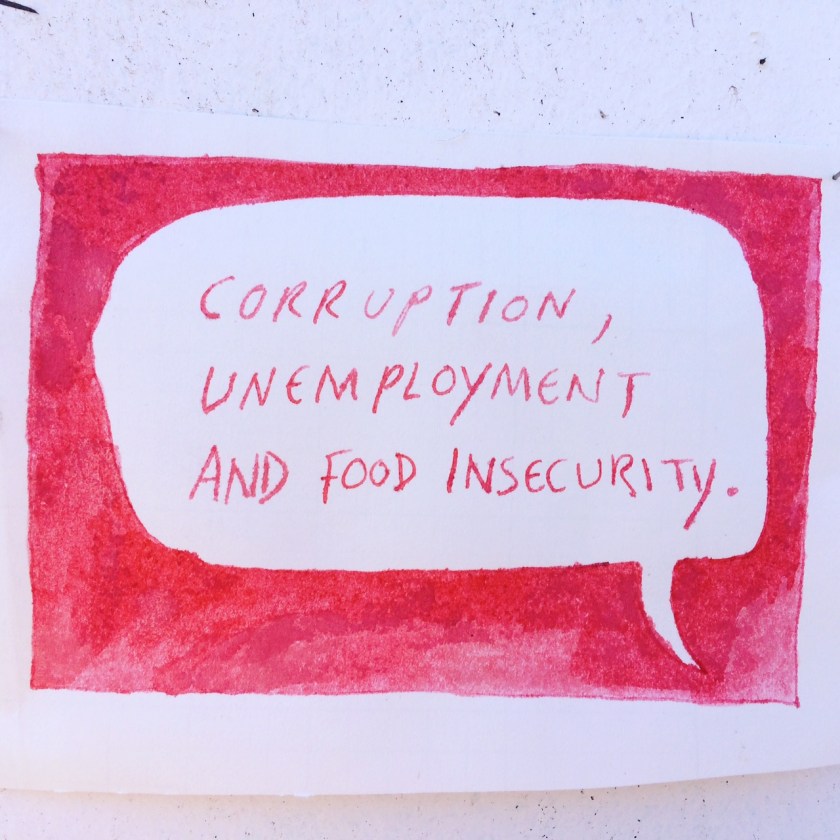 CORRUPTION,
UNEMPLOYMENT
AND FOOD INSECURITY.